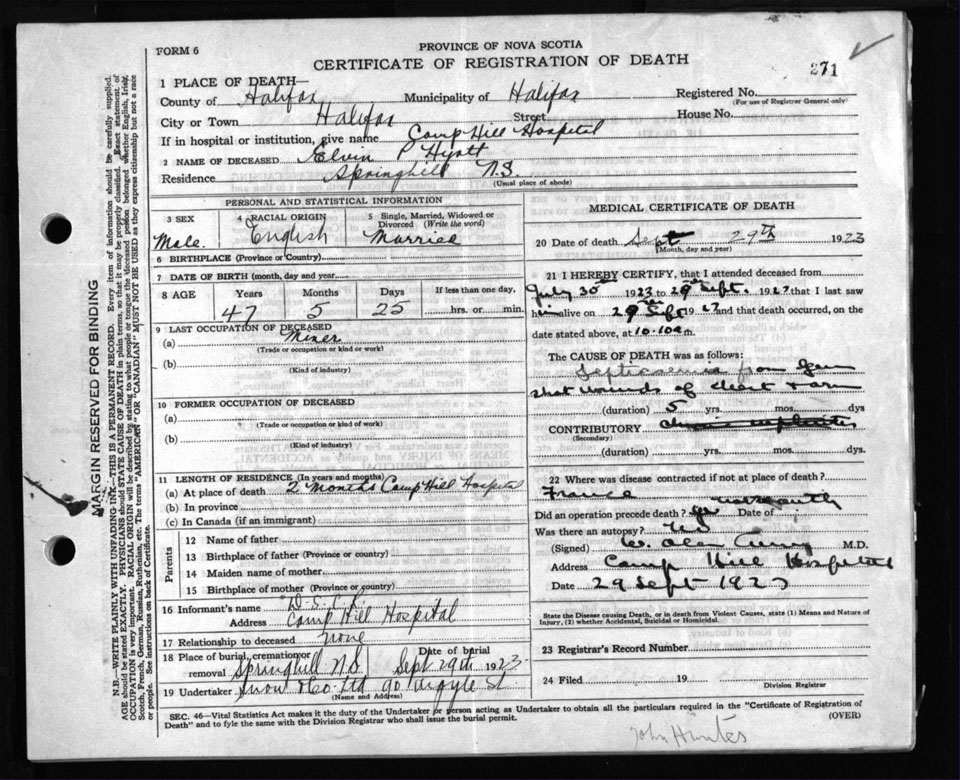 FORM 6
PROVINCE OF NOVA SCOTIA
CERTIFICATE OF REGISTRATION OF DEATH
271
1 PLACE OF DEATH—
County of Halifax Municipality of Halifax Registered No.
(For use of Registrar General only)
City or Town Halifax Street House No.
If in hospital or institution, give name Camp Hill Hospital
2 NAME OF DECEASED Elvin P Hyatt
Residence Springhill N.S.
(Usual place of abode)
PERSONAL AND STATISTICAL INFORMATION
3 SEX
Male.
4 RACIAL ORIGIN
English
5 Single, Married, Widowed or Divorced (Write the word)
Married
6 BIRTHPLACE (Province or Country)
7 DATE OF BIRTH (month, day and year)
8 AGE Years Months Days If less than one day,
47 5 25 hrs. or min.
9 LAST OCCUPATION OF DECEASED
(a) Miner
(Trade or occupation or kind or work)
(b)
(Kind of industry)
10 FORMER OCCUPATION OF DECEASED
(a)
(Trade or occupation or kind of work)
(b)
(Kind of industry)
11 LENGTH OF RESIDENCE (In years and months)
(a) At place of death 2 Months Camp Hill Hospital
(b) In province
(c) In Canada (if an immigrant)
Parents
12 Name of father
13 Birthplace of father (Province or country)
14 Maiden name of mother
15 Birthplace of mother (Province or country)
16 Informant's name D.S.C.R.
Address Camp Hill Hospital
17 Relationship to deceased none
18 Place of burial, cremation or removal Springhill N.S. Date of burial Sept 29th 1923
19 Undertaker Snow & Co. Ltd 90 Argyle St
(Name and Address)
MEDICAL CERTIFICATE OF DEATH
20 Date of death Sept 29th 1923
(Month, day and year)
21 I HEREBY CERTIFY, that I attended deceased from
July 30th 1923 to 29th Sept. 1923 that I last saw
him alive on 29th Sept 23 and that death occurred, on the
date stated above, at 10.10 a m.
The CAUSE OF DEATH was as follows:
Septicaemia from Gun
shot wounds of chest & arm
(duration) 5 yrs. mos. dys
CONTRIBUTORY
(Secondary)
(duration) yrs. mos. dys.
22 Where was disease contracted if not at place of death?
France
Did an operation precede death? Date of
Was there an autopsy? No
(Signed) W. Alan Curry M.D.
Address Camp Hill Hospital
Date 29 Sept 1923
State the Disease causing Death, or in death from Violent Causes, state (1) Means and Nature of
Injury, (2) whether Accidental, Suicidal or Homicidal.
23 Registrar's Record Number
24 Filed 19
Division Registrar
SEC. 46—Vital Statistics Act makes it the duty of the Undertaker or person acting as Undertaker to obtain all the particulars required in the "Certificate of Registration of
Death" and to fyle the same with the Division Registrar who shall issue the burial permit.
(OVER)
John Hunter
MARGIN RESERVED FOR BINDING
N.B.—WRITE PLAINLY WITH UNFADING INK—THIS IS A PERMANENT RECORD. Every item of information should be carefully supplied.
AGE should be stated EXACTLY. PHYSICIANS should STATE CAUSE OF DEATH in plain terms, so that it may be properly classified. Exact statement of
OCCUPATION is very important. RACIAL ORIGIN will be described by stating to what people or tongue the deceased person belonged whether English, Irish,
Scotch, French, German, Russian, Ruthenian, etc. The terms "AMERICAN" OR "CANADIAN" MUST NOT BE USED as they express citizenship but not a race
or people. See instructions on back of Certificate.